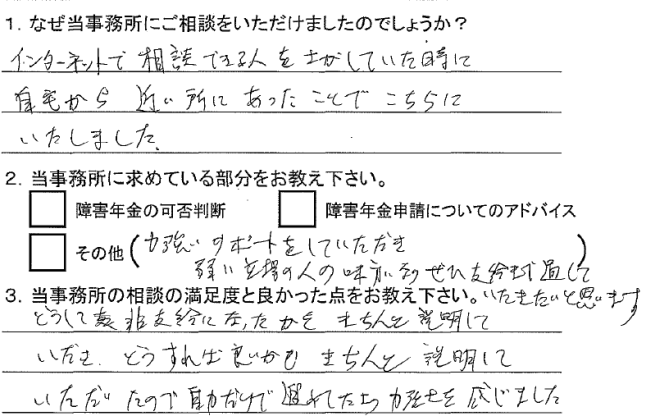 1. なぜ当事務所にご相談をいただけましたのでしょうか?
インターネットで 相談できる人をさがしていた時に
自宅から 近い所にあったことでこちらに
いたしました.
2. 当事務所に求めている部分をお教え下さい。
障害年金の可否判断 障害年金申請についてのアドバイス
その他(力強いサポートをしていただき)
弱い立場の人の味方に ぜひ支給まで通して
3. 当事務所の相談の満足度と良かった点をお教え下さい。いただきたいと思います
どうして 非支給になったかを きちんと 説明して
いただき. どうすれば良いかも きちんと 説明して
いただいたので 自力だけで 力強さを 感じました